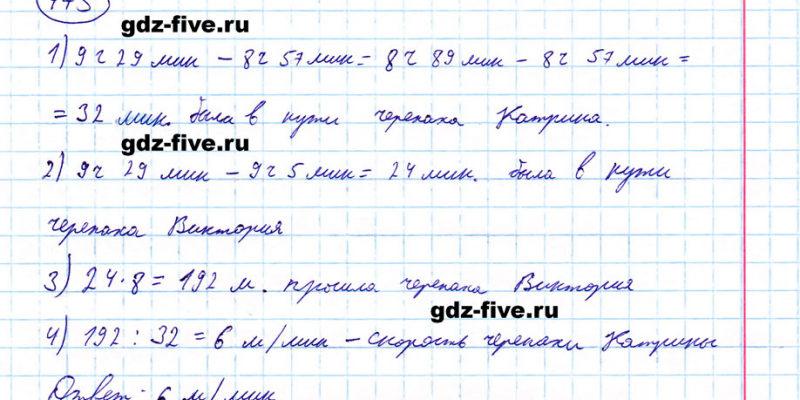 175
gdz-five.ru
1) 9 ч 29 мин - 8 ч 57 мин = 8 ч 89 мин - 8 ч 57 мин =
= 32 мин. была в пути черепаха Катрина.
gdz-five.ru
2) 9 ч 29 мин - 9 ч 5 мин = 24 мин. была в пути
черепаха Виктория
3) 24 · 8 = 192 м. прошла черепаха Виктория
gdz-five.ru
4) 192 : 32 = 6 м/мин - скорость черепахи Катрины
Ответ: 6 м/мин